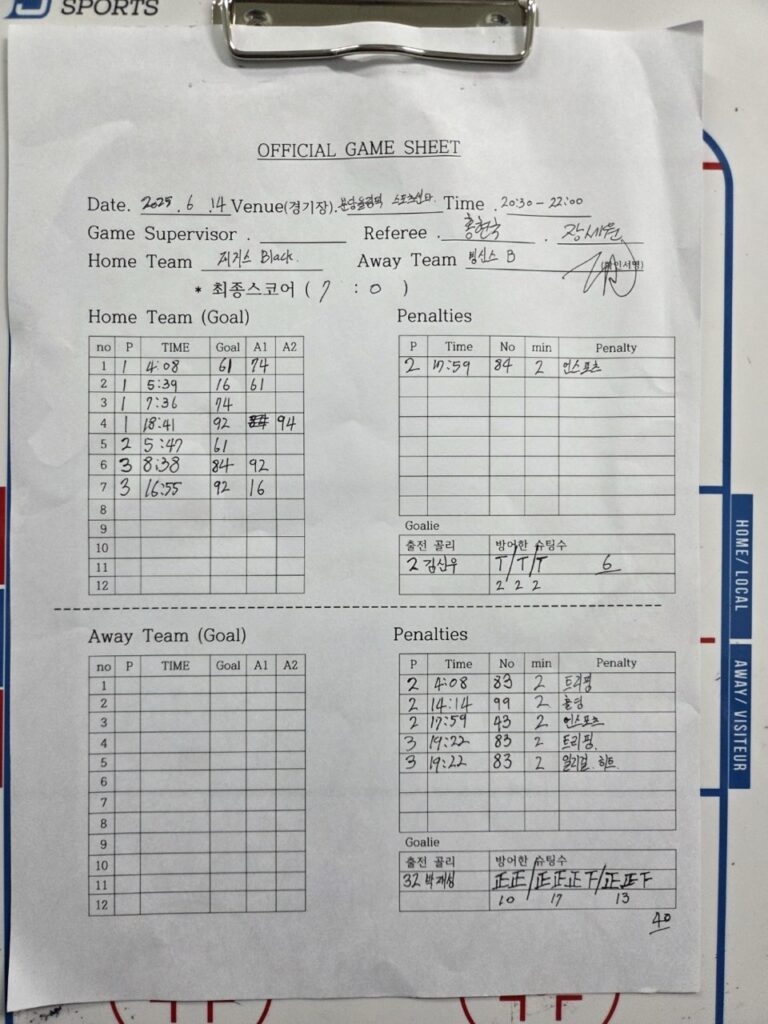 SPORTS
OFFICIAL GAME SHEET
Date. 2025 . 6 .14 Venue(경기장). 분당올림픽 스포츠센터 Time . 20:30 - 22:00
Game Supervisor . Referee . 홍현국 . 장세원
Home Team 피커스 Black. Away Team B
(확인서명)
* 최종스코어 ( 7 : 0 )
Home Team (Goal) Penalties
no P TIME Goal A1 A2
1 1 4:08 61 74
2 1 5:39 16 61
3 1 7:36 74
4 1 18:41 92 94
5 2 5:47 61
6 3 8:38 84 92
7 3 16:55 92 16
8
9
10
11
12
P Time No min Penalty
2 17:59 84 2 언스포츠
Goalie
출전 골리 방어한 슈팅수
2 김신우 T/T/T 6
2 2 2
Away Team (Goal) Penalties
no P TIME Goal A1 A2
1
2
3
4
5
6
7
8
9
10
11
12
P Time No min Penalty
2 4:08 83 2 트리핑
2 14:14 99 2 홀딩
2 17:59 43 2 언스포츠
3 19:22 83 2 트리핑.
3 19:22 83 2 일리걸. 히트.
Goalie
출전 골리 방어한 슈팅수
32 박재성 正正/正正正下/正正下
10 17 13
40
HOME/ LOCAL
AWAY/ VISITEUR